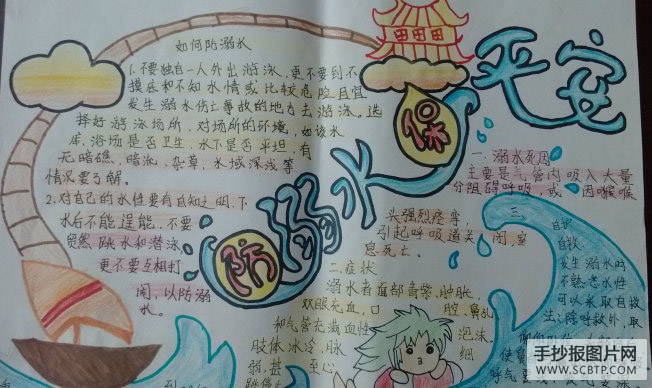 防溺水 保平安
如何防溺水
1.不要独自一人外出游泳,更不要到不
摸底和不知水情或比较危险且宜
发生溺水伤亡等故的地方去游泳。选
择好游泳场所,对场所的环境,如该水
库、浴场是否卫生,水下是否平坦,有
无暗礁、暗流、杂草,水域深浅等
情况要了解。
2.对自己的水性要有自知之明,下
水后不能逞能,不要
贸然跳水和潜泳
更不要互相打
闹,以防溺
水。
一、溺水死因
主要是气管内吸入大量
分阻碍呼吸,或 因喉
头强烈痉挛,
引起呼吸道关闭,窒
息死亡。
二、症状
溺水者面部青紫、肿胀、
双眼充血,口 腔、鼻孔
和气管充满血性 泡沫。
肢体冰冷,脉 细
弱,甚 至心
三、
自护
自救
发生溺水时
不熟悉水性
可以采取自救
生:除呼救外,取
手抄报图片网
WWW.SCBTP.COM